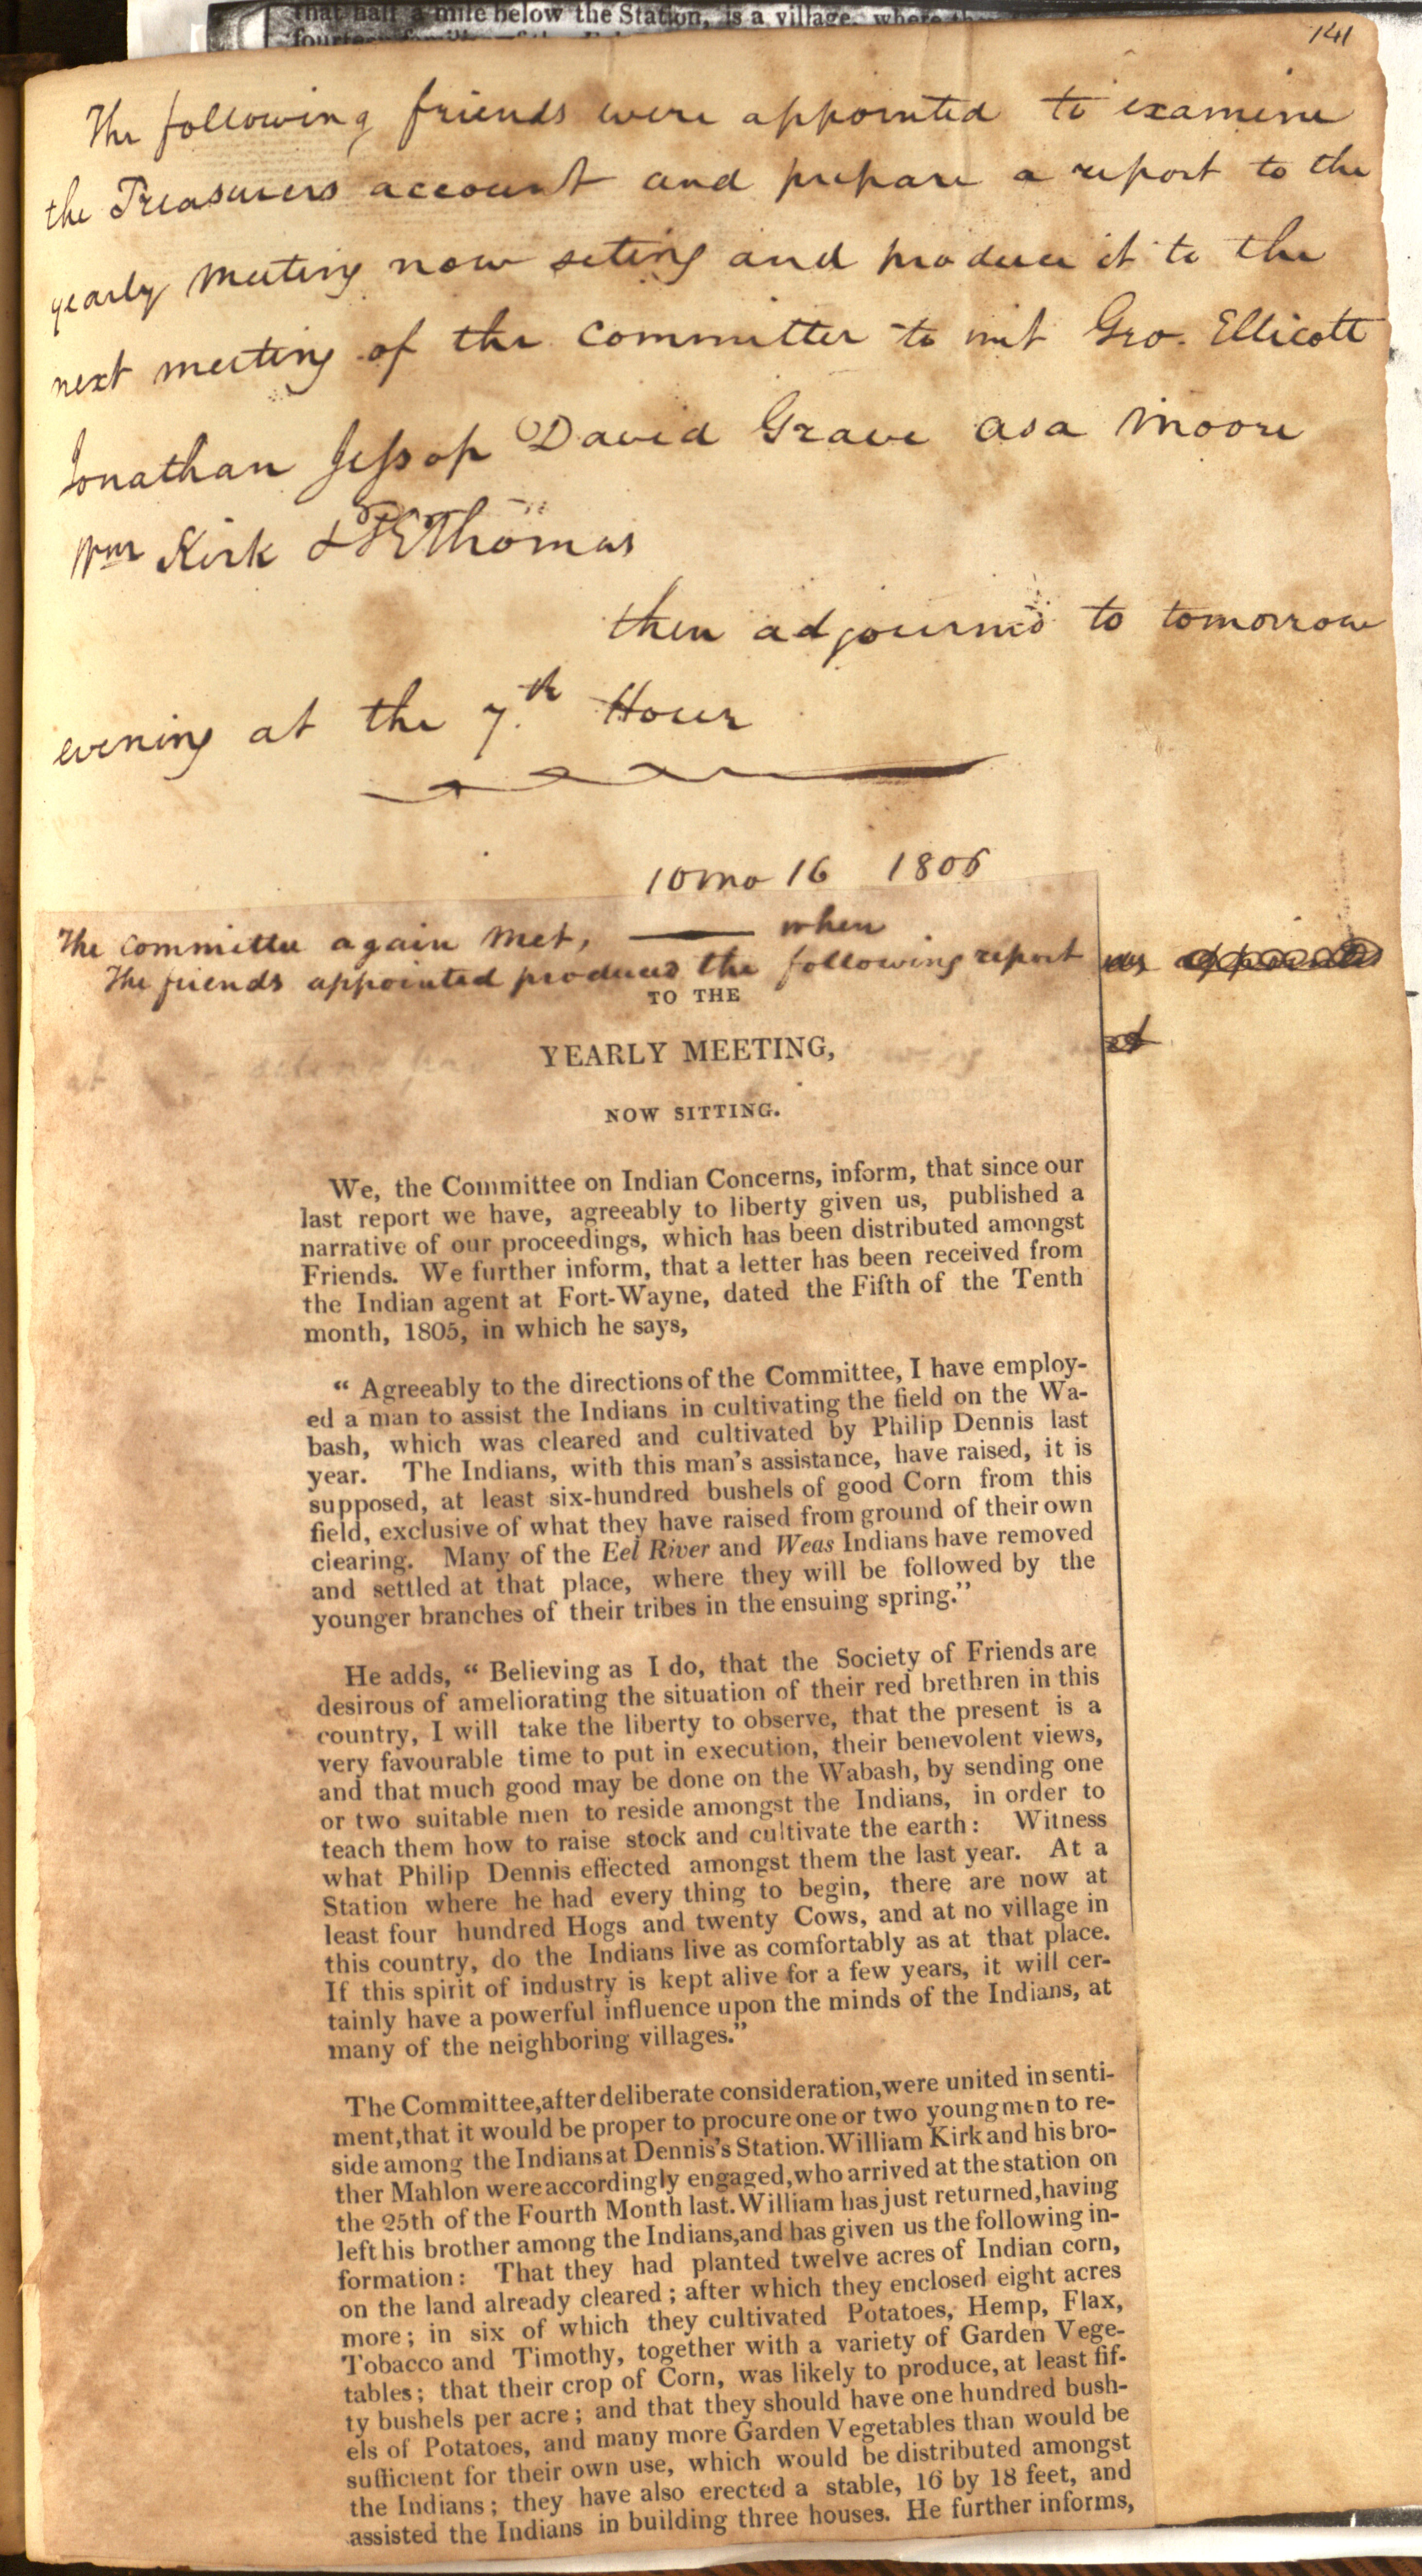 that half a mile below the Station, is a village, where
141
The following friends were appointed to examine
the Treasurers account and prepare a report to the
yearly meeting now seting and produce it to the
next meeting of the committee to wit Geo. Ellicott
Jonathan Jessop David Grave asa Moore
Wm Kirk & P E Thomas
then adjourned to tomorrow
evening at the 7.th Hour
10 mo 16 1806
The committee again met, when
The friends appointed produced the following report
TO THE
YEARLY MEETING,
NOW SITTING.
We, the Committee on Indian Concerns, inform, that since our
last report we have, agreeably to liberty given us, published a
narrative of our proceedings, which has been distributed amongst
Friends. We further inform, that a letter has been received from
the Indian agent at Fort-Wayne, dated the Fifth of the Tenth
month, 1805, in which he says,
“ Agreeably to the directions of the Committee, I have employ-
ed a man to assist the Indians in cultivating the field on the Wa-
bash, which was cleared and cultivated by Philip Dennis last
year. The Indians, with this man's assistance, have raised, it is
supposed, at least six-hundred bushels of good Corn from this
field, exclusive of what they have raised from ground of their own
clearing. Many of the Eel River and Weas Indians have removed
and settled at that place, where they will be followed by the
younger branches of their tribes in the ensuing spring.”
He adds, “ Believing as I do, that the Society of Friends are
desirous of ameliorating the situation of their red brethren in this
country, I will take the liberty to observe, that the present is a
very favourable time to put in execution, their benevolent views,
and that much good may be done on the Wabash, by sending one
or two suitable men to reside amongst the Indians, in order to
teach them how to raise stock and cultivate the earth: Witness
what Philip Dennis effected amongst them the last year. At a
Station where he had every thing to begin, there are now at
least four hundred Hogs and twenty Cows, and at no village in
this country, do the Indians live as comfortably as at that place.
If this spirit of industry is kept alive for a few years, it will cer-
tainly have a powerful influence upon the minds of the Indians, at
many of the neighboring villages.”
The Committee, after deliberate consideration, were united in senti-
ment, that it would be proper to procure one or two young men to re-
side among the Indians at Dennis's Station. William Kirk and his bro-
ther Mahlon were accordingly engaged, who arrived at the station on
the 25th of the Fourth Month last. William has just returned, having
left his brother among the Indians, and has given us the following in-
formation: That they had planted twelve acres of Indian corn,
on the land already cleared; after which they enclosed eight acres
more; in six of which they cultivated Potatoes, Hemp, Flax,
Tobacco and Timothy, together with a variety of Garden Vege-
tables; that their crop of Corn, was likely to produce, at least fif-
ty bushels per acre; and that they should have one hundred bush-
els of Potatoes, and many more Garden Vegetables than would be
sufficient for their own use, which would be distributed amongst
the Indians; they have also erected a stable, 16 by 18 feet, and
assisted the Indians in building three houses. He further informs,